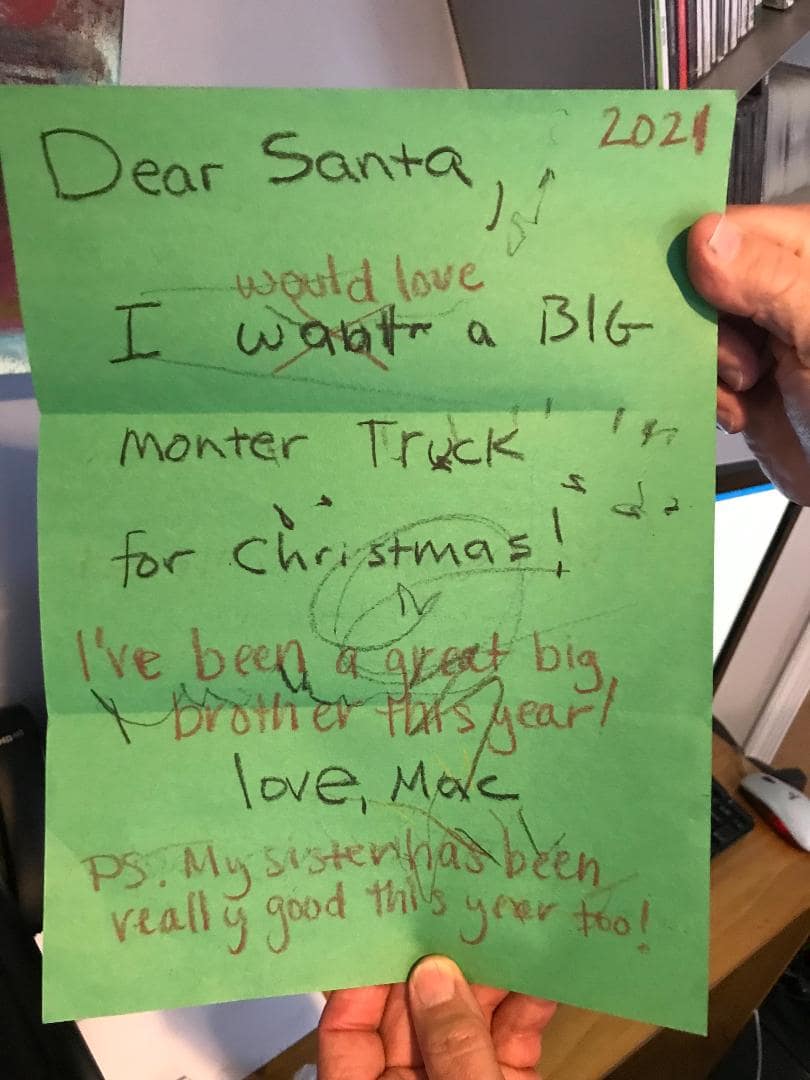 2021
Dear Santa,
would love
I want a BIG
monter Truck
for christmas!
I've been a great big
brother this year!
love, Mac
PS. My sister has been
really good this year too!